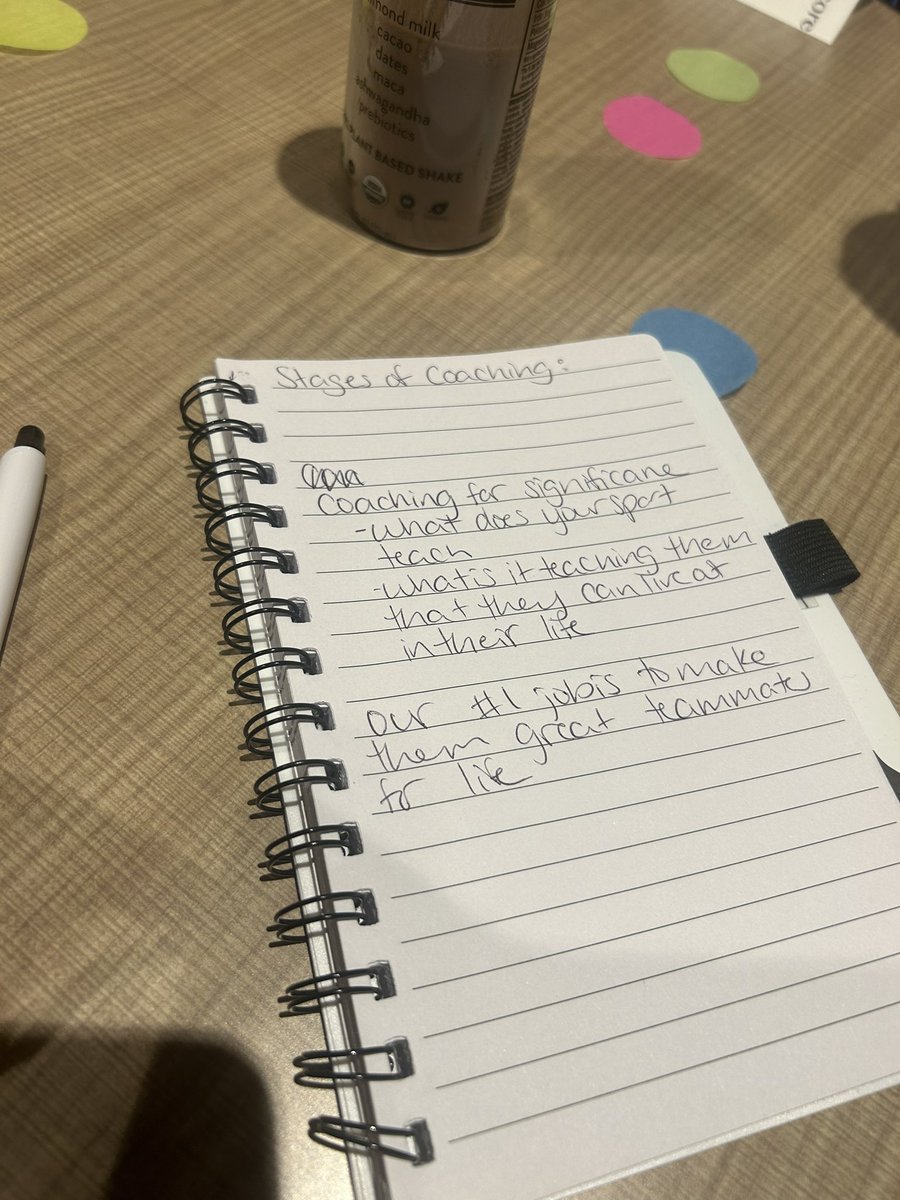 almond milk
cacao
dates
maca
ashwagandha
prebiotics
PLANT BASED SHAKE
core
Stages of Coaching:
Coaching for significane
-what does your sport
teach
-what is it teaching them
that they can live at
in their life
our #1 job is to make
them great teammates
for life